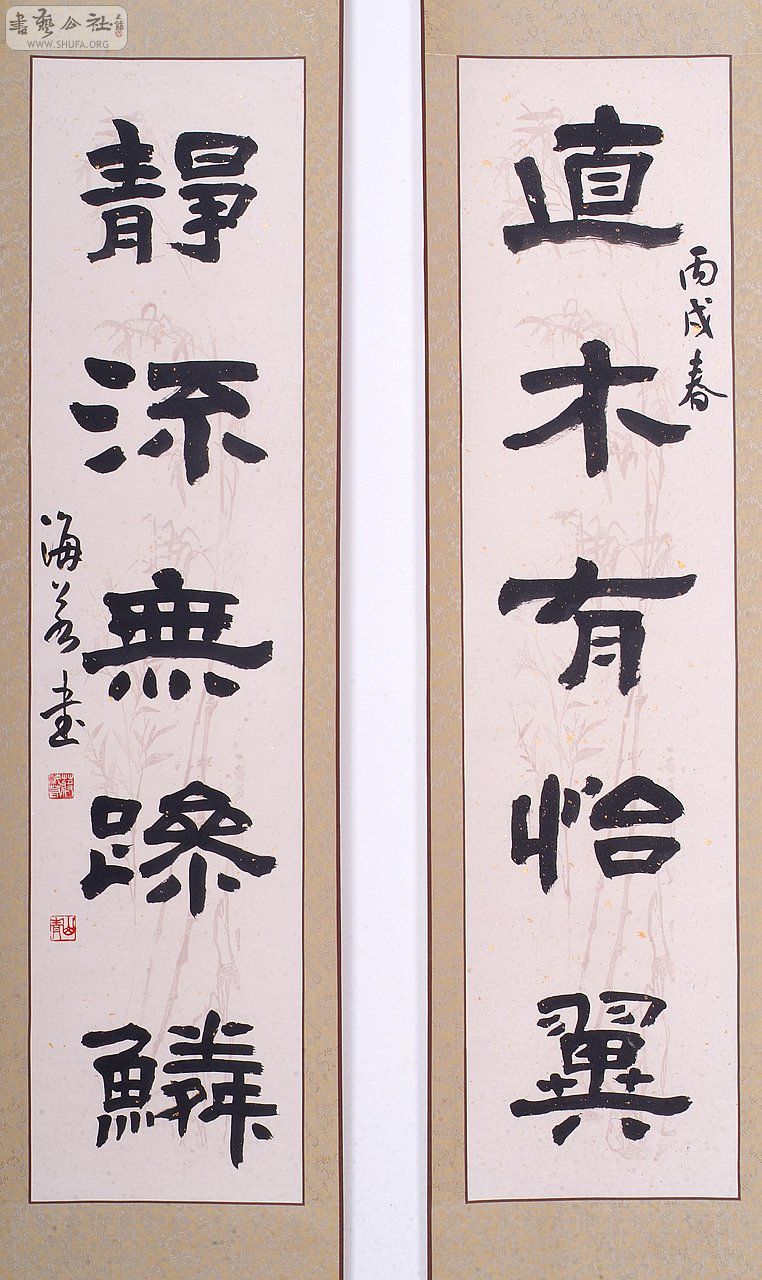 直木有怡翼
丙戌春
靜流無躁鱗
海若書
書藝公社
WWW.SHUFA.ORG